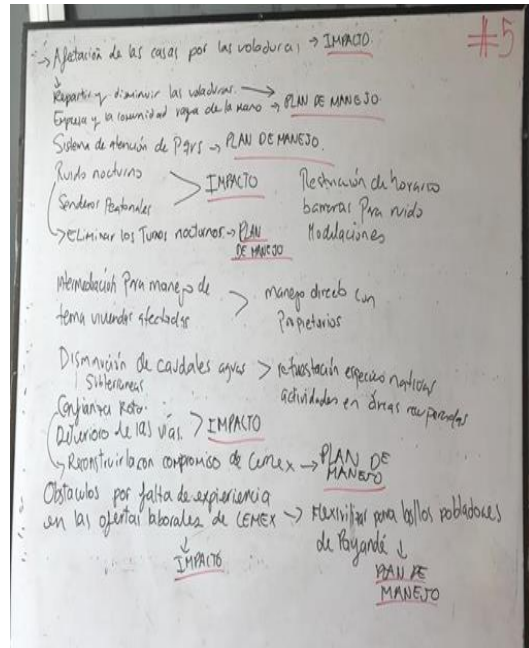 #5
→ Afectación de las casas por las voladuras → IMPACTO.
↓
Repartir y disminuir las voladuras. →
Empresa y la comunidad vaya de la mano → PLAN DE MANEJO.
Sistema de atención de PQRS → PLAN DE MANEJO.
Ruido nocturno
Senderos Peatonales > IMPACTO
Restricción de horarios
barreras Para ruido
Modulaciones
→ eliminar los Turnos nocturnos → PLAN
DE MANEJO
Intermediación Para manejo de
tema viviendas afectadas > manejo directo con
Propietarios
Disminución de caudales aguas > especies nativas
Subterraneas
actividades en áreas recuperadas
Confianza Rota.
Deterioro de las vías. > IMPACTO
→ Reconstruirla con compromiso de Cemex → PLAN DE
MANEJO
Obstaculos por falta de expieriencia
en las ofertas laborales de CEMEX → para los pobladores
de Payandé ↓
↓
IMPACTO
PLAN DE
MANEJO